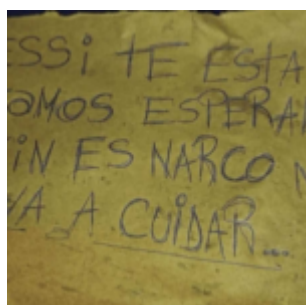 ESSi TE ESTA
AMOS ESPERA
iN ES NARCO
VA A CUiDAR...